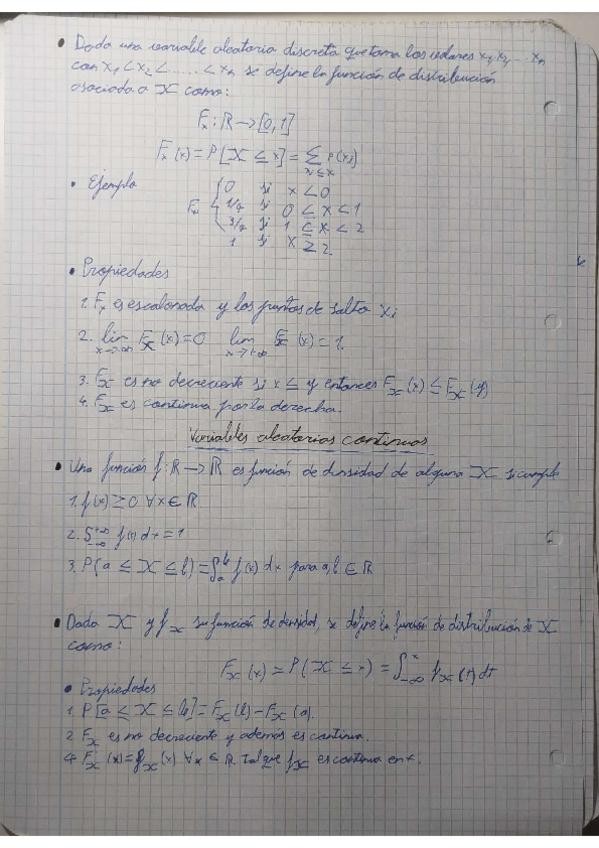 • Dada una variable aleatoria discreta que toma los valores x₁, x₂, ... xₙ
con x₁ < x₂ < ..... < xₙ se define la función de distribución
asociada a X como:
Fₓ: ℝ → [0,1]
Fₓ(x) = P[X ≤ x] = Σ_{xᵢ≤x} P(xᵢ)
• Ejemplo
0 si x < 0
Fₓ 1/4 si 0 ≤ x < 1
3/4 si 1 ≤ x < 2
1 si x ≥ 2
• Propiedades
1. Fₓ es escalonada y los puntos de salto xᵢ
2. lim_{x→-∞} Fₓ(x) = 0 lim_{x→+∞} Fₓ(x) = 1.
3. Fₓ es no decreciente si x ≤ y entonces Fₓ(x) ≤ Fₓ(y)
4. Fₓ es continua por la derecha.
Variables aleatorias continuas
• Una función f: ℝ → ℝ es función de densidad de alguna X si cumple
1. f(x) ≥ 0 ∀x ∈ ℝ
2. ∫_{-∞}^{+∞} f(x) dx = 1
3. P(a ≤ X ≤ b) = ∫_a^b f(x) dx para a, b ∈ ℝ
• Dada X y fₓ su función de densidad, se define la función de distribución de X
como:
Fₓ(x) = P(X ≤ x) = ∫_{-∞}^x fₓ(t) dt
• Propiedades
1. P[a ≤ X ≤ b] = Fₓ(b) - Fₓ(a).
2 Fₓ es no decreciente y además es continua.
4. F'ₓ(x) = fₓ(x) ∀x ∈ ℝ tal que fₓ es continua en x.